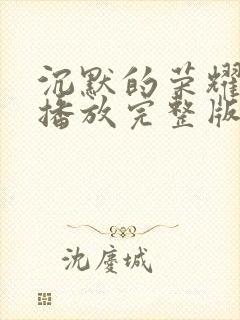 沉默的荣耀
播放完整版
沈廑城